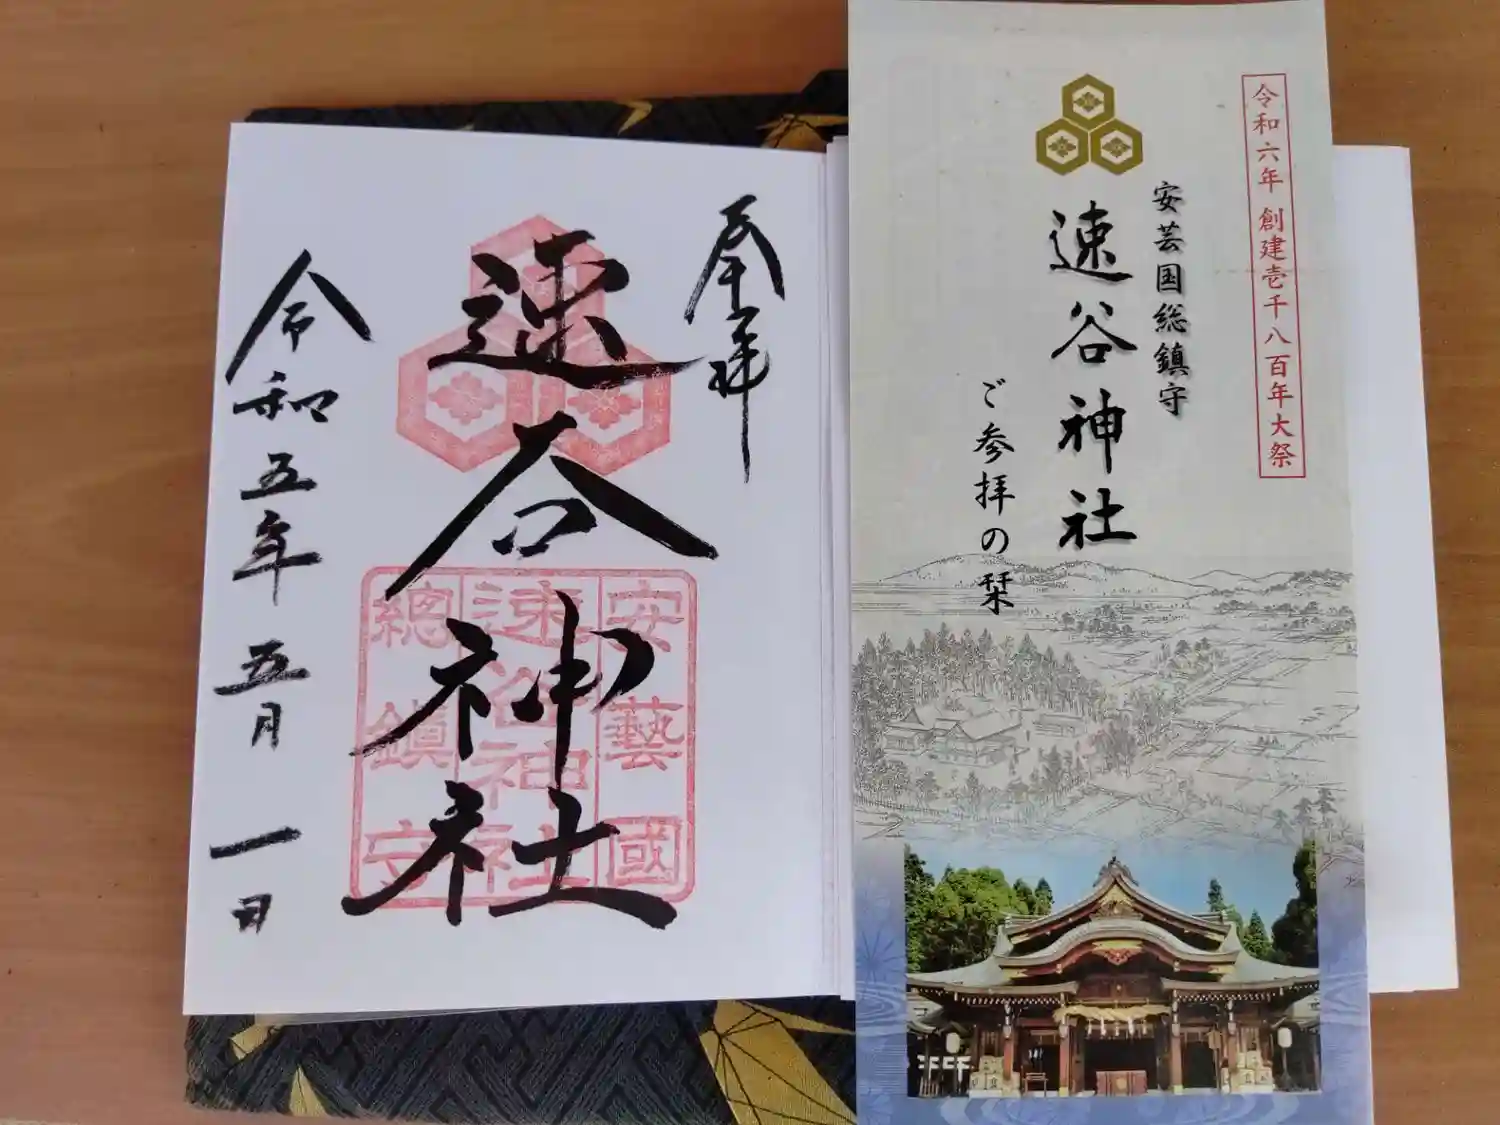 奉拝
速谷神社
安藝國
速谷神社
總鎮守
令和五年五月一日
令和六年 創建壱千八百年大祭
安芸国総鎮守
速谷神社
ご参拝の栞